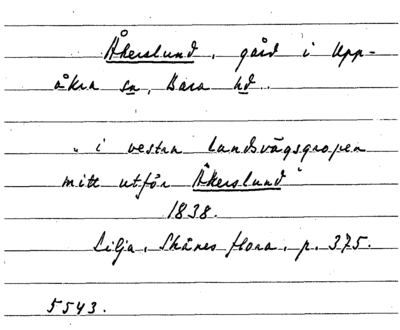 Åkerslund, gård i Upp-
åkra sn, Bara hd.
"i vestra landsvägsgropen
mitt utför Åkerslund"
1838.
Lilja, Skånes flora, p. 375.
5543.